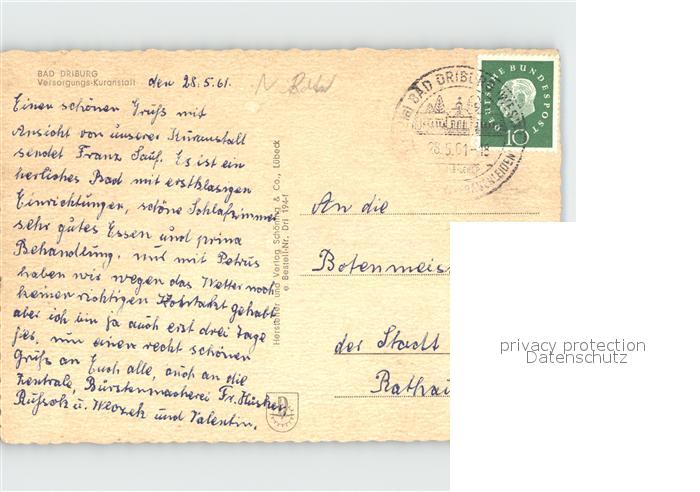 BAD DRIBURG
Versorgungs-Kuranstalt
den 28.5.61.
Einen schönen Gruß mit
Ansicht von unserer Kuranstalt
sendet Franz Sauf. Es ist ein
herliches Bad mit erstklasigen
Einrichtungen, schöne Schlafzimmer
sehr gutes Essen und prima
Behandlung. nur mit Petrus
haben wir wegen das Wetter noch
keinen richtigen gehabt
aber ich bin ja auch erst drei Tage
hier, nun einen recht schönen
Gruß an Euch alle, auch an die
Zentrale, Bürstenmacherei Fr.
u. und Valentin.
Hersteller und Verlag Schöning & Co., Lübeck
Bestell-Nr. Dri 194
BAD DRIBURG
28.5.61-18
DEUTSCHE BUNDESPOST
10
An die
Botenmeis
der Stadt
Rathau
privacy protection
Datenschutz